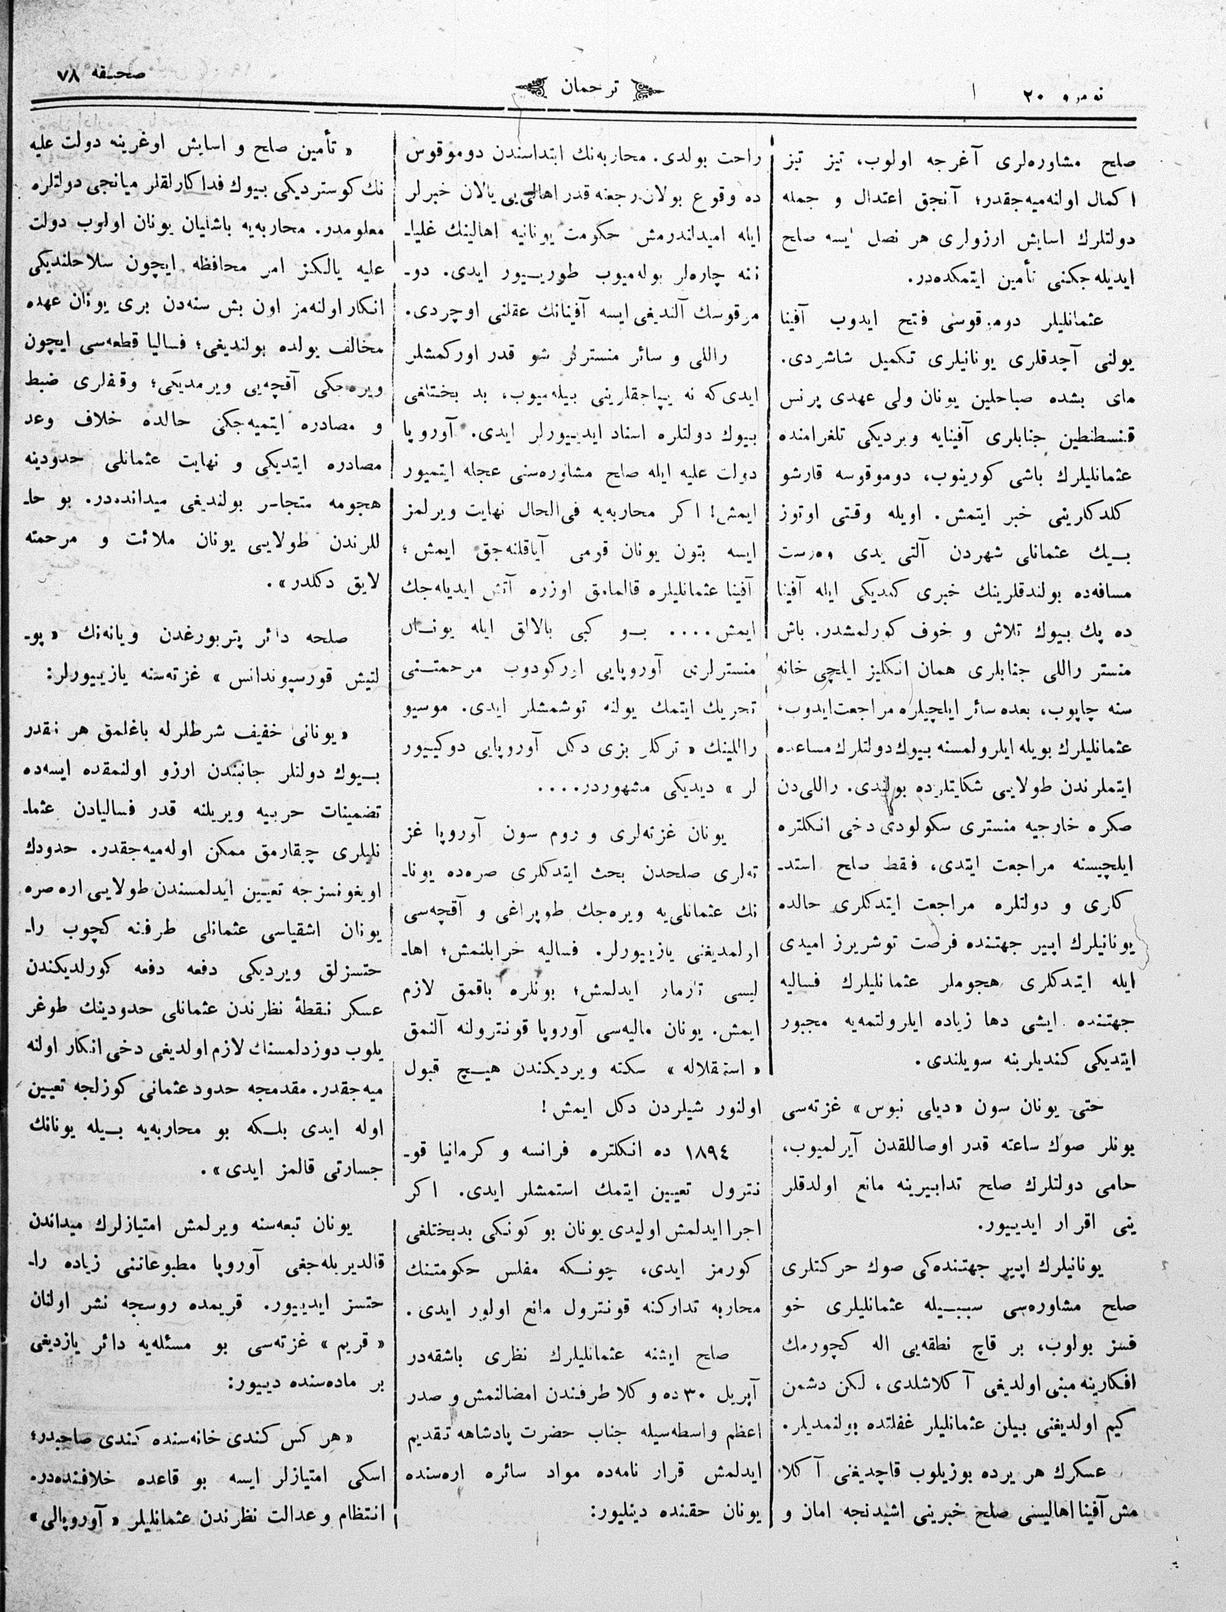 نومرو ٢٠
ترجمان
صحیفه ٧٨
صلح مشاوره‌لری آغرجه اولوب، تیز تیز
اكمال اولنه‌میه‌جقدر؛ آنجق اعتدال و جمله
دولتلرك اسایش ارزولری هر نصل ایسه صلح
ایدیله‌جكنی تأمین ایتمكده‌در.
عثمانلیلر دوموقوسی فتح ایدوب آفینا
یولنی آچدقلری یونانیلری تكمیل شاشردی.
مای بشده صباحلین یونان ولی عهدی پرنس
قنسطنطین جنابلری آفینایه ویردیكی تلغرامنده
عثمانلیلرك باشی كورینوب، دوموقوسه قارشو
كلدكارینی خبر ایتمش. اویله وقتی اوتوز
بیك عثمانلی شهردن آلتی یدی وه‌رست
مسافه‌ده بولندقلرینك خبری كمدیكی ایله آفینا
ده پك بیوك تلاش و خوف كورلمشدر. باش
منستر راللی جنابلری همان انكلیز ایلچی خانه
سنه چاپوب، بعده سائر ایلچیلره مراجعت ایدوب،
عثمانلیلرك بویله ایلرولمسنه بیوك دولتلرك مساعده
ایتملرندن طولایی شكایتلرده بولندی. راللی‌دن
صكره خارجیه منستری سكولودی دخی انكلتره
ایلچیسنه مراجعت ایتدی، فقط صلح استد‌
كاری و دولتلره مراجعت ایتدكلری حالده
یونانیلرك اپیر جهتنده فرصت توشریرز امیدی
ایله ایتدكلری هجوملر عثمانلیلرك فسالیه
جهتنده ایشی دها زیاده ایلرولتمه‌یه مجبور
ایتدیكی كندیلرینه سویلندی.
حتی یونان سون «دیلی نیوس» غزته‌سی
یونلر صوك ساعته قدر اوصاللقدن آیرلمیوب،
حامی دولتلرك صلح تدابیرینه مانع اولدقلر
ینی اقرار ایدییور.
یونانیلرك اپیر جهتنده‌كی صوك حركتلری
صلح مشاوره‌سی سببیله عثمانلیلری خو
فسز بولوب، بر قاچ نطقه‌یی اله كچورمك
افكارینه مبنی اولدیغی آكلاشلدی، لكن دشمن
كیم اولدیغنی بیلن عثمانلیلر غفلتده بولنمدیلر.
عسكرك هر یرده بوزیلوب قاچدیغنی آكلا
مش آفینا اهالیسی صلح خبرینی اشیدنجه امان و
راحت بولدی. محاربه‌نك ابتداسندن دوموقوس
ده وقوع بولان رجعته قدر اهالی‌یی یالان خبرلر
ایله امیداندرمش حكومت یونانیه اهالینك غلیا‌
ننه چاره‌لر بوله‌میوب طوریییور ایدی. دو‌
مرقوسك آلندیغی ایسه آفینانك عقلنی اوچردی.
راللی و سائر منسترلر شو قدر اوركمشلر
ایدی‌كه نه یپاجقلرینی بیله‌میوب، بد بختلغی
بیوك دولتلره اسناد ایدییورلر ایدی. آوروپا
دولت علیه ایله صلح مشاوره‌سنی عجله ایتمیور
ایمش! اكر محاربه‌یه فی‌الحال نهایت ویرلمز
ایسه بتون یونان قومی آیاقلنه‌جق ایمش؛
آفینا عثمانلیلره قالمامق اوزره آتش ایدیله‌جك
ایمش.... بو كبی یالالق ایله یونان
منسترلری آوروپایی اوركودوب مرحمتنی
تحریك ایتمك یولنه توشمشلر ایدی. موسیو
راللینك «تركلر بزی دكل آوروپایی دوكییور
لر» دیدیكی مشهوردر....
یونان غزته‌لری و روم سون آوروپا غز
ته‌لری صلحدن بحث ایتدكلری صره‌ده یونا‌
نك عثمانلی‌یه ویره‌جك طوپراغی و آقچه‌سی
اولمدیغنی یازییورلر. فسالیه خرابلنمش؛ اها‌
لیسی تارمار ایدلمش؛ بونلره باقمق لازم
ایمش. یونان مالیه‌سی آوروپا قونترولنه آلنمق
«استقلاله» سكته ویردیكندن هیچ قبول
اولنور شیلردن دكل ایمش!
١٨٩٤ ده انكلتره فرانسه و كرمانیا قو‌
نترول تعیین ایتمك استمشلر ایدی. اكر
اجرا ایدلمش اولیدی یونان بو كونكی بدبختلغی
كورمز ایدی، چونكه مفلس حكومتنك
محاربه تداركنه قونترول مانع اولور ایدی.
صلح ایشنه عثمانلیلرك نظری باشقه‌در
آپریل ٣٠ ده وكلا طرفندن امضالنمش و صدر
اعظم واسطه‌سیله جناب حضرت پادشاهه تقدیم
ایدلمش قرار نامه‌ده مواد سائره اره‌سنده
یونان حقنده دینلیور:
«تأمین صلح و اسایش اوغرینه دولت علیه
نك كوستردیكی بیوك فداكارلقلر میانجی دولتلره
معلومدر. محاربه‌یه باشلیان یونان اولوب دولت
علیه یالكز امر محافظه ایچون سلاحلندیكی
انكار اولنه‌مز اون بش سنه‌دن بری یونان عهده
مخالف یولده بولندیغی؛ فسالیا قطعه‌سی ایچون
ویره‌جكی آقچه‌یی ویرمدیكی؛ وقفلری ضبط
و مصادره ایتمیه‌جكی حالده خلاف وعد
مصادره ایتدیكی و نهایت عثمانلی حدودینه
هجومه متجاسر بولندیغی میدانده‌در. بو حا‌
للرندن طولایی یونان ملائت و مرحمته
لایق دكلدر».
صلحه دائر پتربورغدن ویانه‌نك «پو‌
لتیش قورسپوندانس» غزته‌سنه یازییورلر:
«یونانی خفیف شرطلرله باغلمق هر نقدر
بیوك دولتلر جانبندن ارزو اولنمقده ایسه‌ده
تضمینات حربیه ویریلنه قدر فسالیادن عثما‌
نلیلری چقارمق ممكن اوله‌میه‌جقدر. حدودك
اویغونسزجه تعیین ایدلمسندن طولایی اره صره
یونان اشقیاسی عثمانلی طرفنه كچوب را‌
حتسزلق ویردیكی دفعه دفعه كورلدیكندن
عسكر نقطهٔ نظرندن عثمانلی حدودینك طوغر
یلوب دوزدلمسنك لازم اولدیغی دخی انكار اولنه
میه‌جقدر. مقدمجه حدود عثمانی كوزلجه تعیین
اوله ایدی بلكه بو محاربه‌یه بیله یونانك
جسارتی قالمز ایدی».
یونان تبعه‌سنه ویرلمش امتیازلرك میداندن
قالدیریله‌جغی آوروپا مطبوعاتنی زیاده را‌
حتسز ایدییور. قریمده روسجه نشر اولنان
«قریم» غزته‌سی بو مسئله‌یه دائر یازدیغی
بر ماده‌سنده دییور:
«هر كس كندی خانه‌سنده كندی صاحبدر؛
اسكی امتیازلر ایسه بو قاعده خلافنده‌در.
انتظام و عدالت نظرندن عثمانلیلر «آوروپالی»